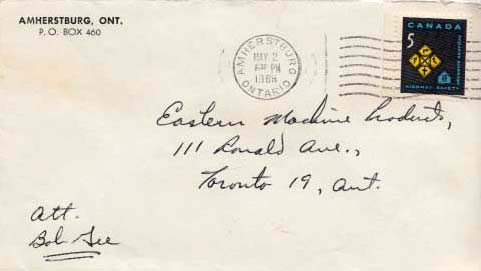 AMHERSTBURG, ONT.
P. O. BOX 460
AMHERSTBURG
MAY 2
PM
ONTARIO
CANADA
5
HIGHWAY SAFETY
Eastern Machine Products,
111 Ronald Ave.,
Toronto 19, Ont.
Att.
Bob Gee